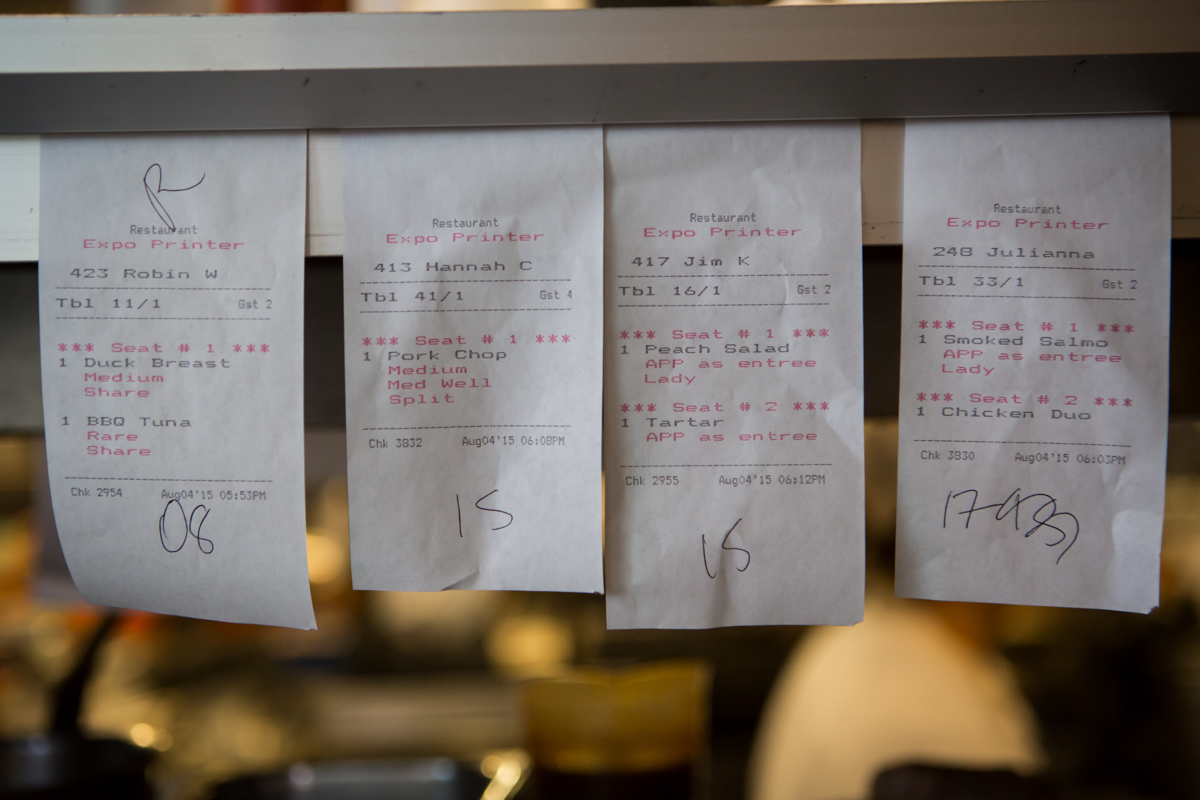 Restaurant
Expo Printer
423 Robin W
Tbl 11/1 Gst 2
*** Seat # 1 ***
1 Duck Breast
Medium
Share
1 BBQ Tuna
Rare
Share
Chk 2954 Aug04'15 05:53PM
08
Restaurant
Expo Printer
413 Hannah C
Tbl 41/1 Gst 4
*** Seat # 1 ***
1 Pork Chop
Medium
Med Well
Split
Chk 3832 Aug04'15 06:08PM
15
Restaurant
Expo Printer
417 Jim K
Tbl 16/1 Gst 2
*** Seat # 1 ***
1 Peach Salad
APP as entree
Lady
*** Seat # 2 ***
1 Tartar
APP as entree
Chk 2955 Aug04'15 06:12PM
15
Restaurant
Expo Printer
248 Julianna
Tbl 33/1 Gst 2
*** Seat # 1 ***
1 Smoked Salmo
APP as entree
Lady
*** Seat # 2 ***
1 Chicken Duo
Chk 3830 Aug04'15 06:03PM